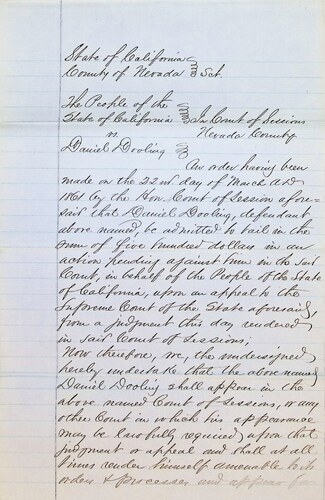 State of California
County of Nevada } Sct.
The People of the
State of California } In Court of Sessions
vs. Nevada County
Daniel Dooling
An order having been
made on the 22nd day of March A.D.
1861 by the Hon. Court of Session afore-
said that Daniel Dooling, defendant
above named, be admitted to bail in the
sum of five hundred dollars in an
action pending against him in the said
Court, in behalf of the People of the State
of California, upon an appeal to the
Supreme Court of the State aforesaid,
from a judgment this day rendered
in said Court of Sessions;
Now therefore, we, the undersigned
hereby undertake that the above named
Daniel Dooling shall appear in the
above named Court of Sessions, or any
other Court in which his appearance
may be lawfully required, upon that
judgment or appeal and shall at all
times render himself amenable to its
orders & processes and appear for